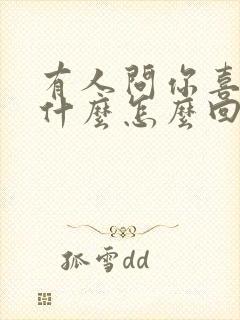 有人問你喜
什麼怎麼回
孤雪dd